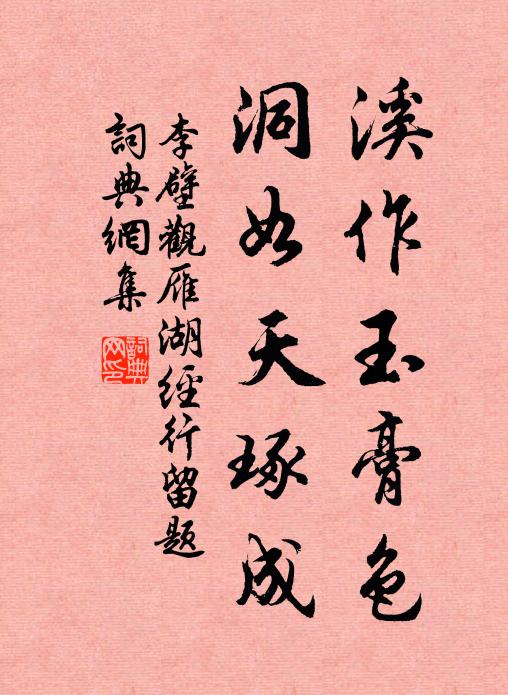 溪作玉膏色
洞如天琢成
李壁觀雁湖經行留題
詞典網集
詞典網印